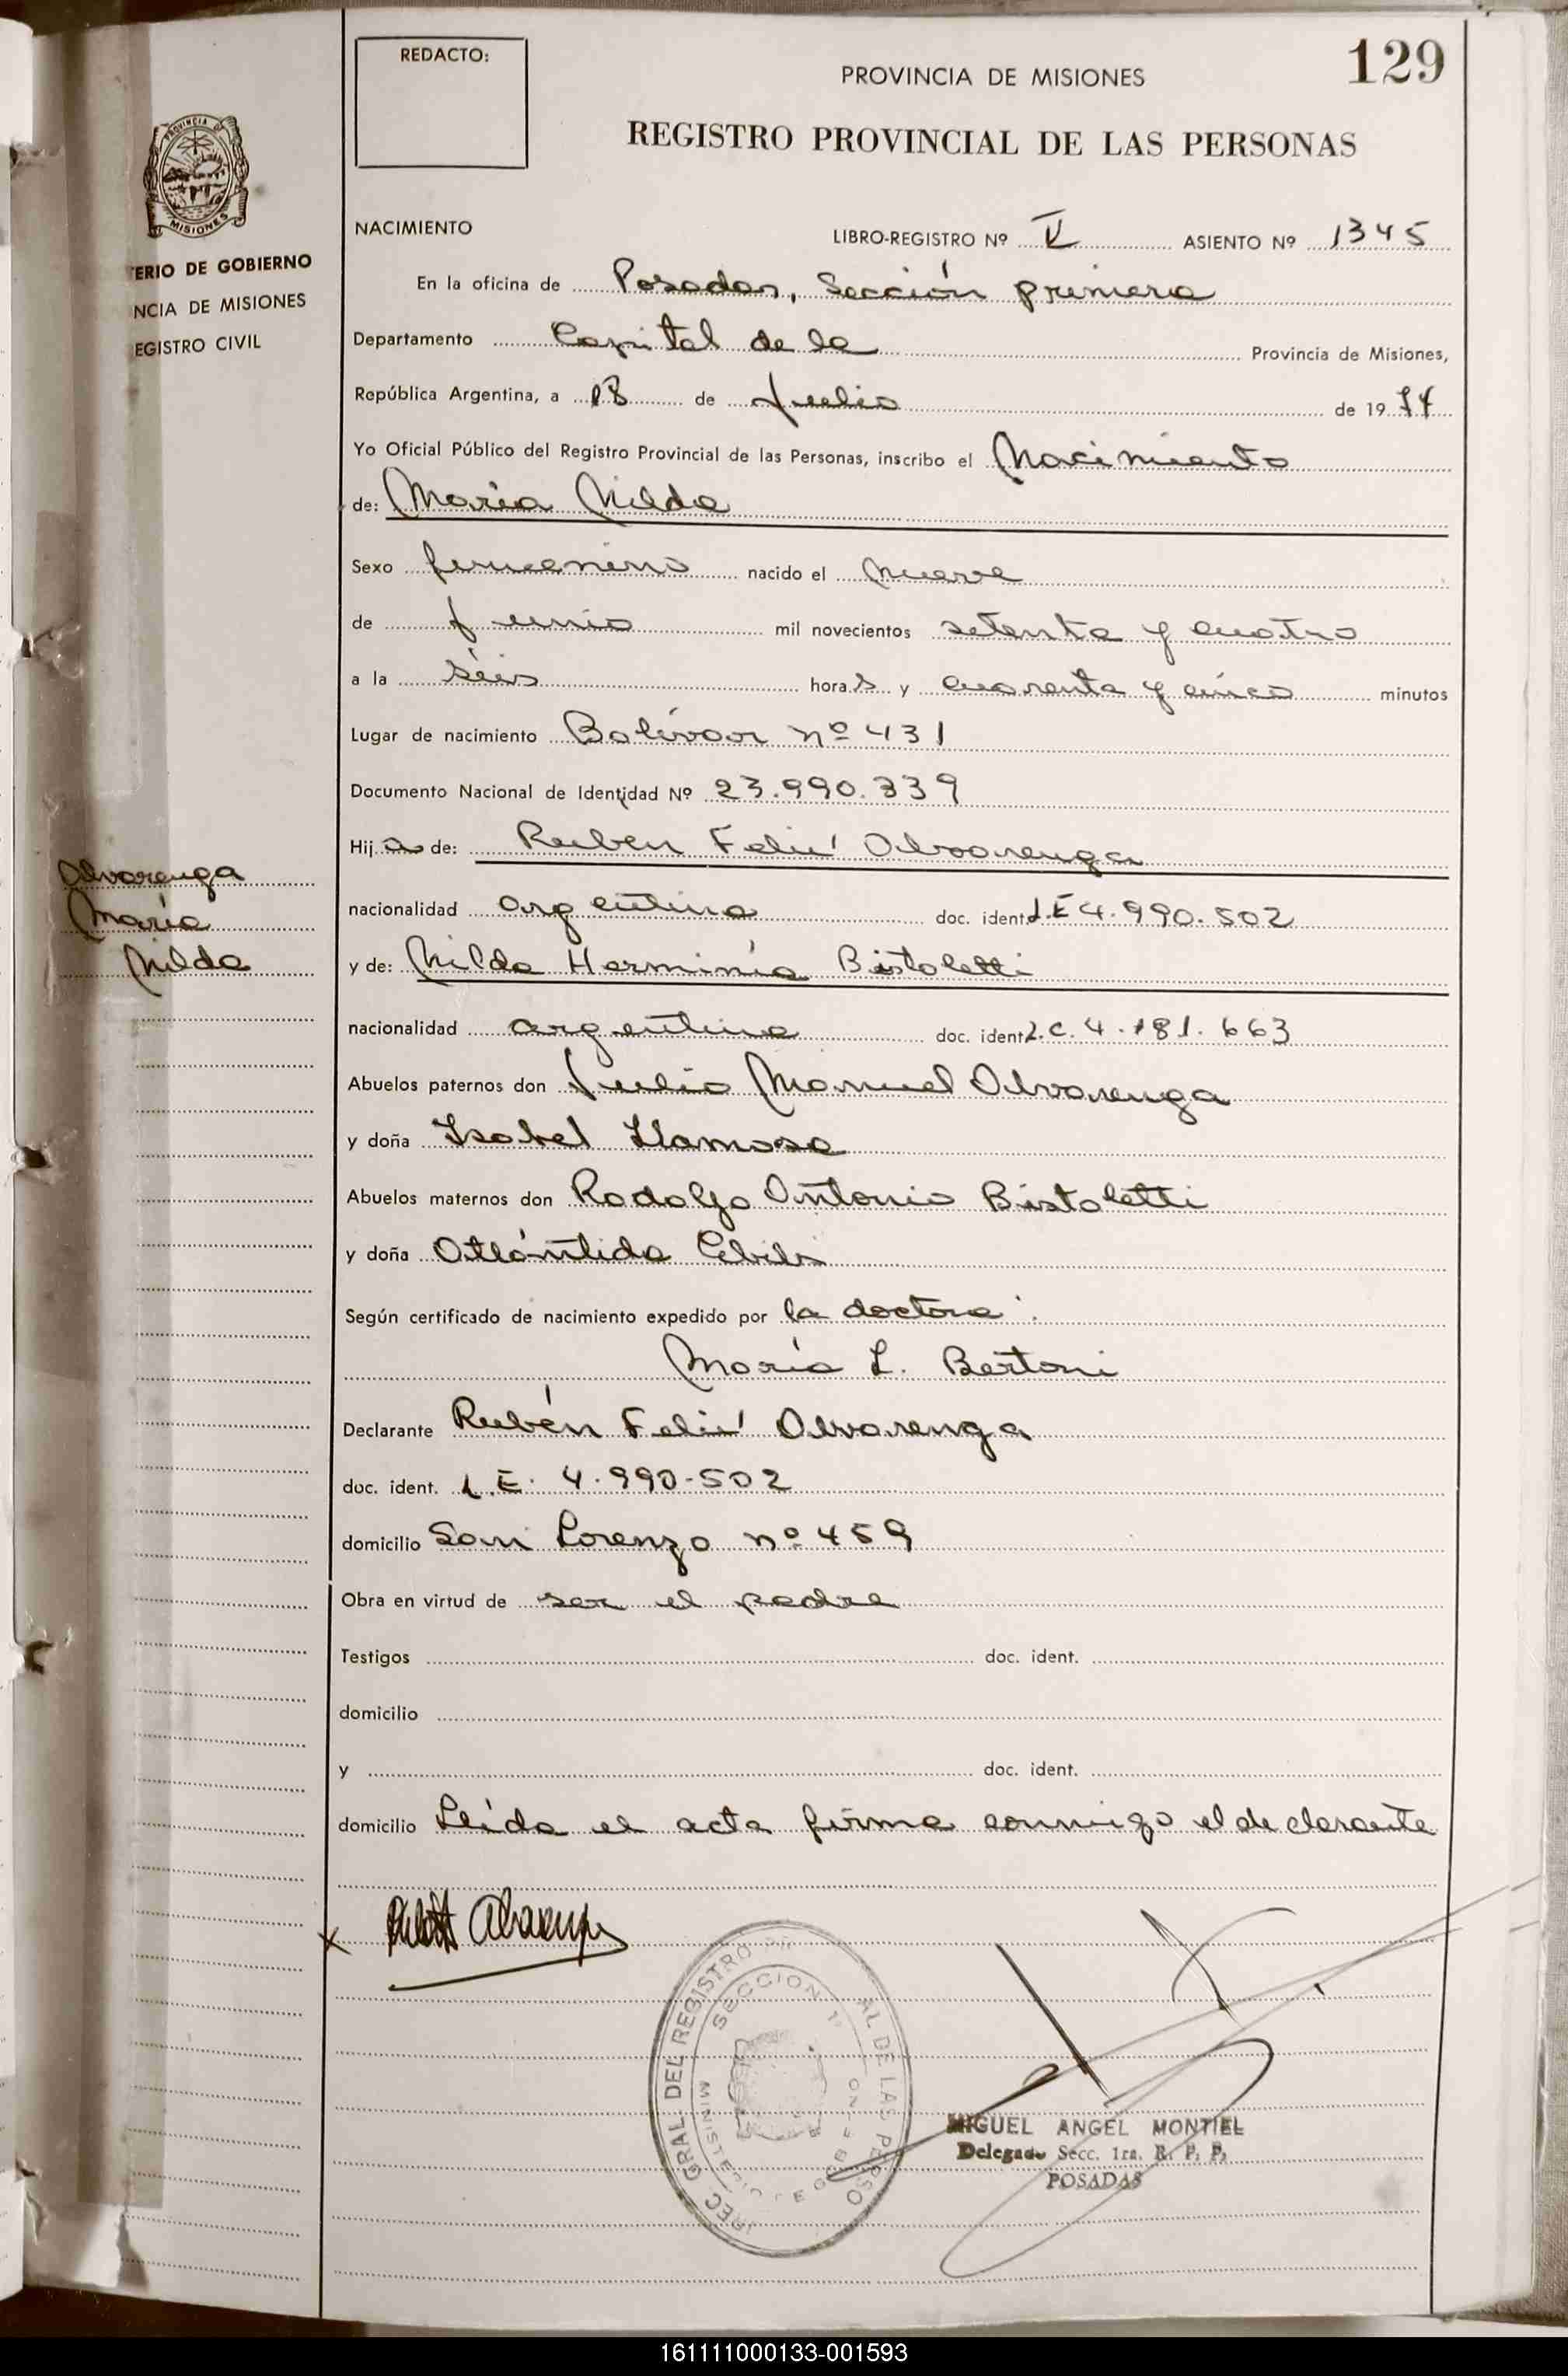 129
REDACTO:
PROVINCIA DE MISIONES
REGISTRO PROVINCIAL DE LAS PERSONAS
PROVINCIA DE
MISIONES
ERIO DE GOBIERNO
NCIA DE MISIONES
EGISTRO CIVIL
NACIMIENTO
LIBRO-REGISTRO Nº V ASIENTO Nº 1345
En la oficina de Posadas, Sección primera
Departamento Capital de la Provincia de Misiones,
República Argentina, a 18 de Julio de 1974
Yo Oficial Público del Registro Provincial de las Personas, inscribo el Nacimiento
de: María Nilda
Sexo femenino nacido el nueve
de junio mil novecientos setenta y cuatro
a la séis horas y cuarenta y cinco minutos
Lugar de nacimiento Bolívar nº 431
Documento Nacional de Identidad Nº 23.990.339
Hija de: Rubén Feliú Alvarenga
Alvarenga
María
Nilda
nacionalidad argentina doc. ident. L.E 4.990.502
y de: Nilda Herminia Bistoletti
nacionalidad argentina doc. ident. L.C. 4.181.663
Abuelos paternos don Julio Manuel Alvarenga
y doña Isabel Llamosa
Abuelos maternos don Rodolfo Antonio Bistoletti
y doña Atlántida
Según certificado de nacimiento expedido por la doctora
María L. Bertoni
Declarante Rubén Feliú Alvarenga
doc. ident. L.E. 4.990-502
domicilio San Lorenzo nº 459
Obra en virtud de ser el padre
Testigos doc. ident.
domicilio
y doc. ident.
domicilio Leída el acta firma conmigo el declarante
x
REC. GRAL. DEL REGISTRO PR AL DE LAS PERSO
SECCION 1ª
MINISTERIO DE GOBIERNO
MIGUEL ANGEL MONTIEL
Delegado Secc. 1ra. R. P. P.
POSADAS
161111000133-001593